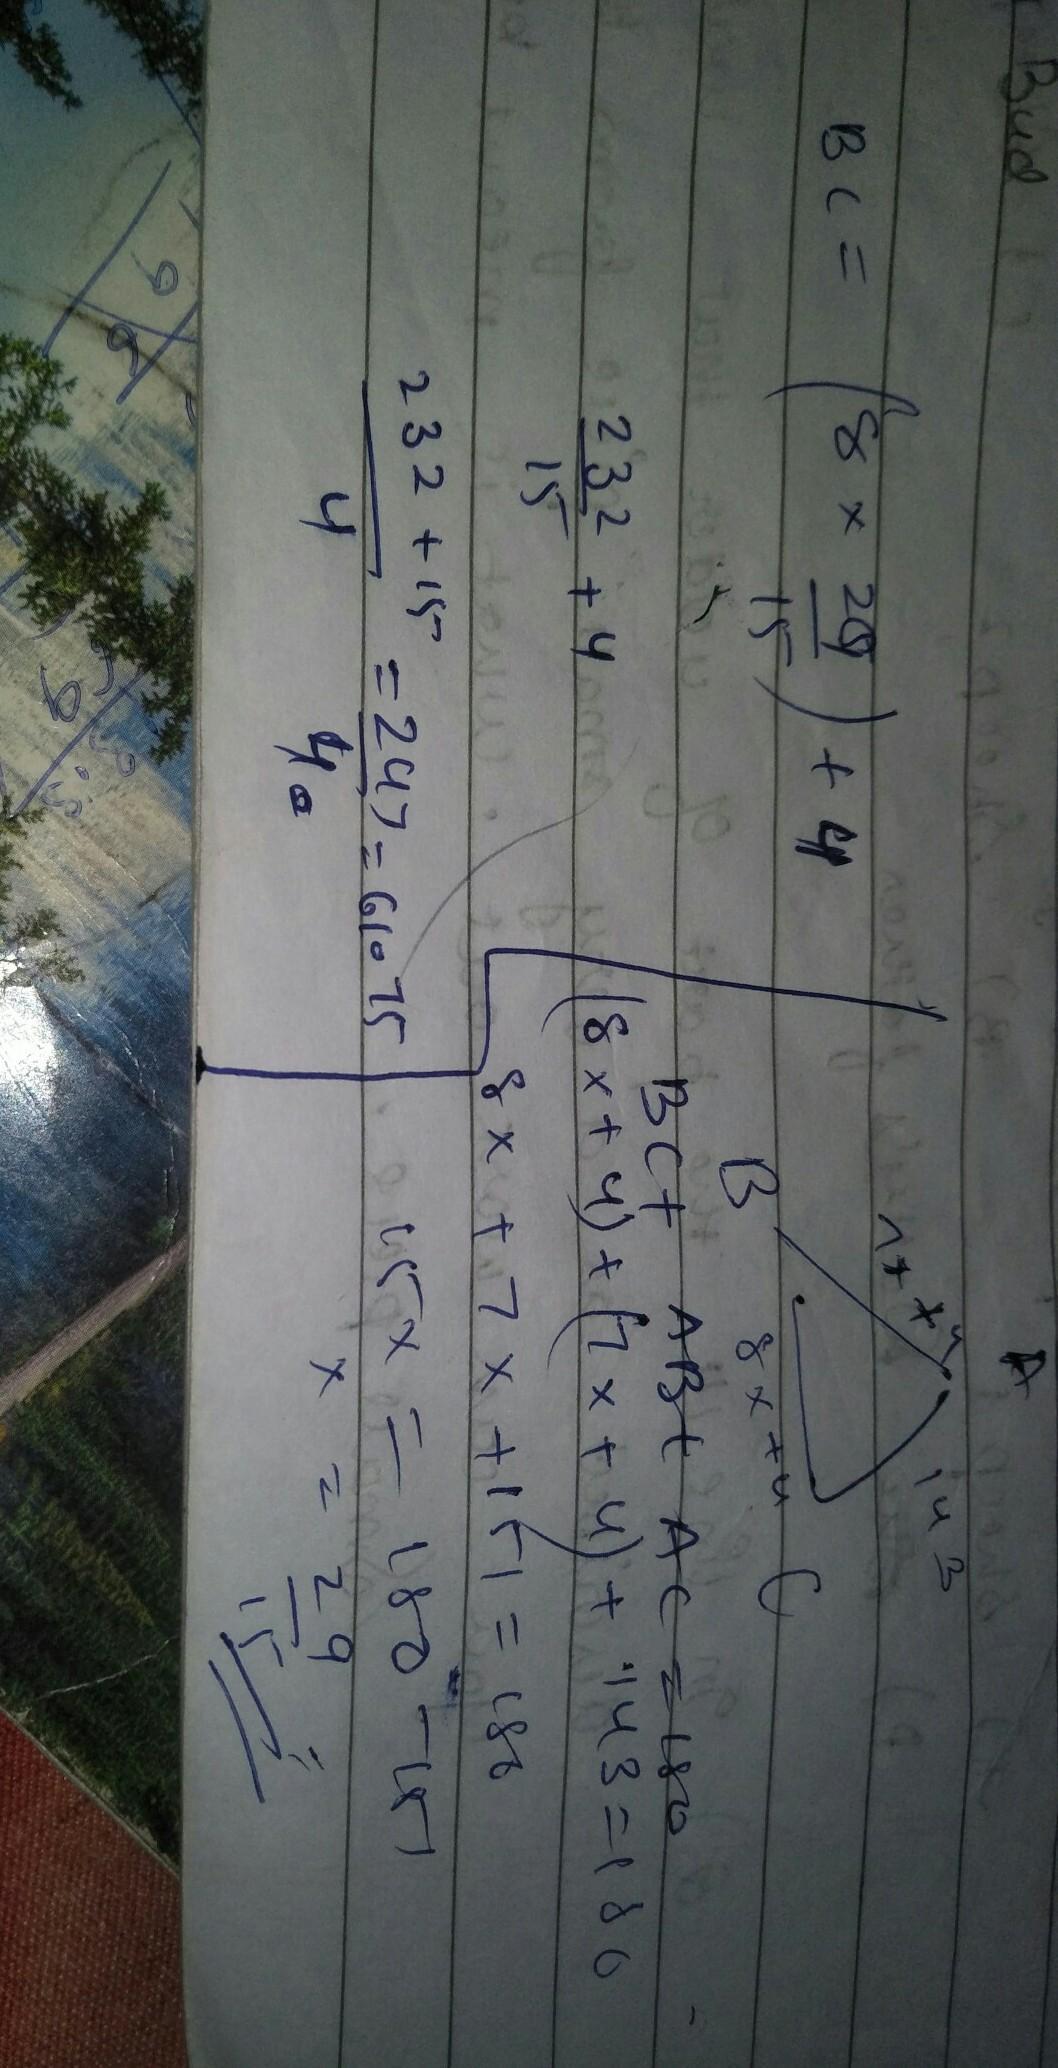 A
7x+4
143
B
8x+4
C
BC + AB + AC = 180
(8x+4) + (7x+4) + 143 = 180
8x + 7x + 151 = 180
15x = 180 - 151
x = 29
15
BC = (8 x 29) + 4
15
232 + 4
15
232 + 15 = 247 = 61.75
4 4